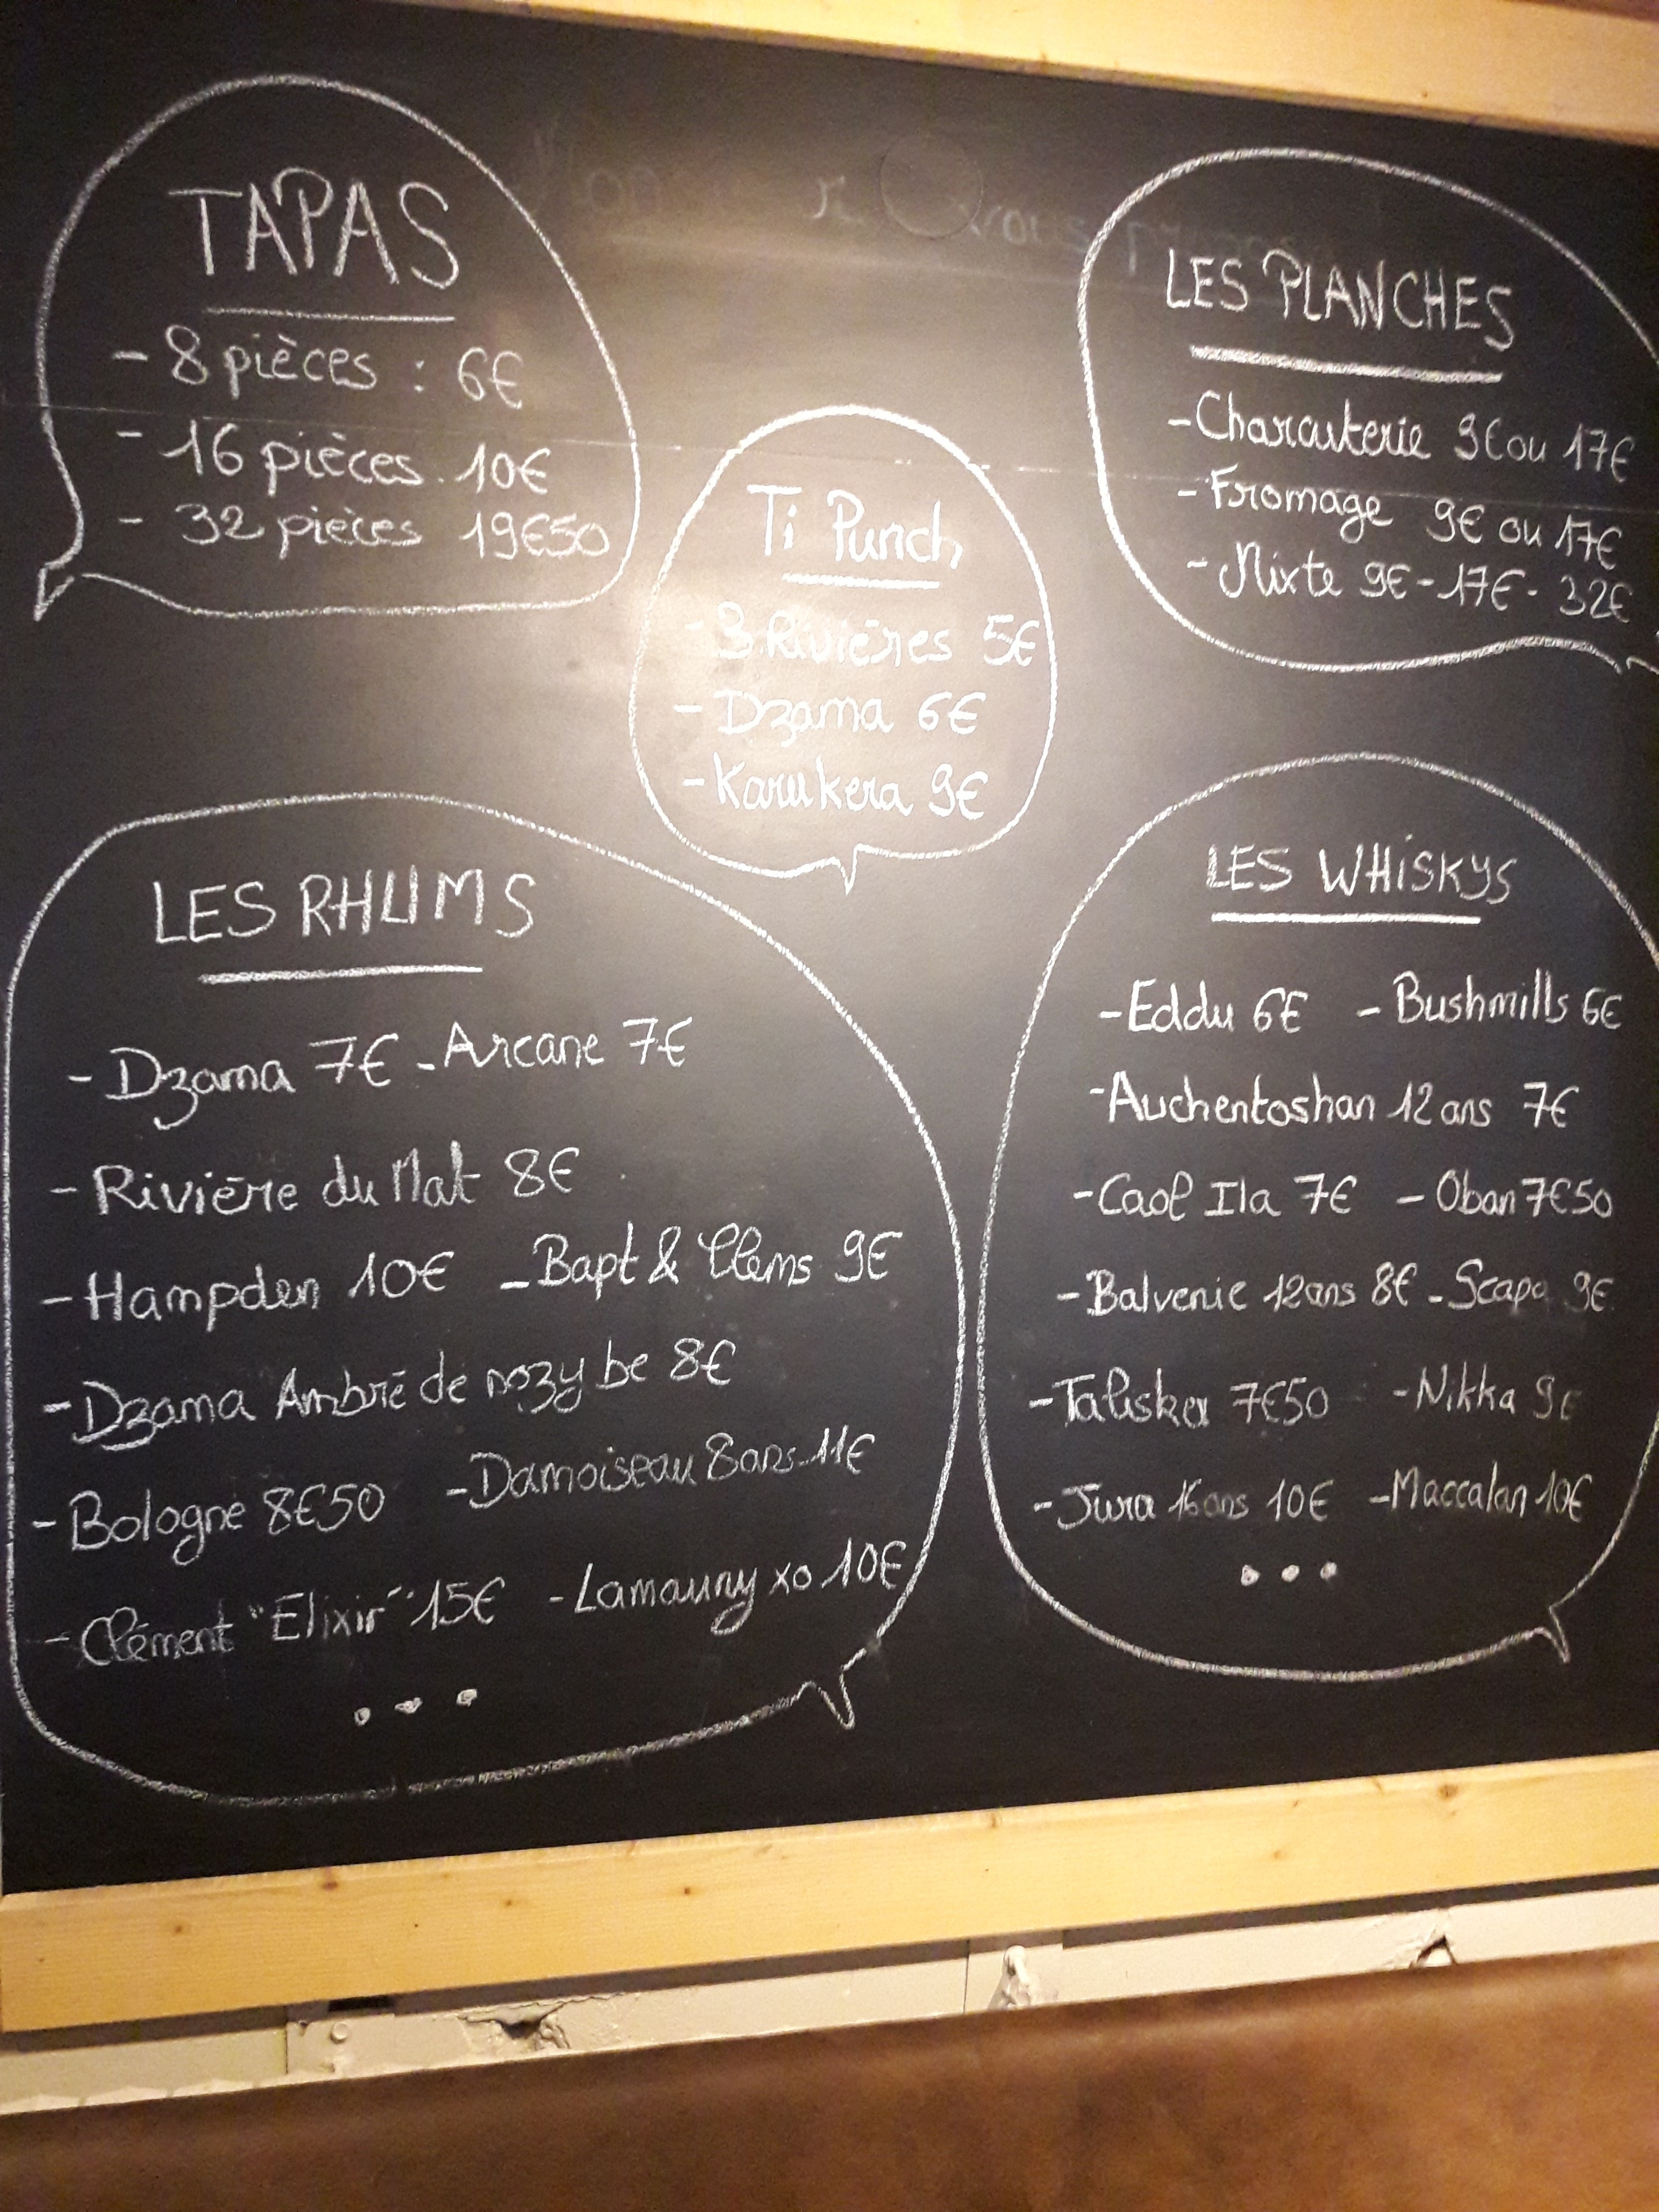 TAPAS
- 8 pièces : 6€
- 16 pièces. 10€
- 32 pièces 19€50
LES PLANCHES
- Charcuterie 9€ou 17€
- Fromage 9€ ou 17€
- Mixte 9€ - 17€ - 32€
Ti Punch
- 3 Rivières 5€
- Dzama 6€
- Karukera 9€
LES RHUMS
- Dzama 7€ - Arcane 7€
- Rivière du Mat 8€
- Hampden 10€ - Bapt & Clems 9€
- Dzama Ambré de nozy be 8€
- Bologne 8€50 - Damoiseau 8ans 11€
- Clément "Elixir" 15€ - Lamauny xo 10€
...
LES WHiSKYS
- Eddu 6€ - Bushmills 6€
- Auchentoshan 12 ans 7€
- Caol Ila 7€ - Oban 7€50
- Balvenie 12ans 8€ - Scapa 9€
- Talisker 7€50 - Nikka 9€
- Jura 16 ans 10€ - Maccalan 10€
...